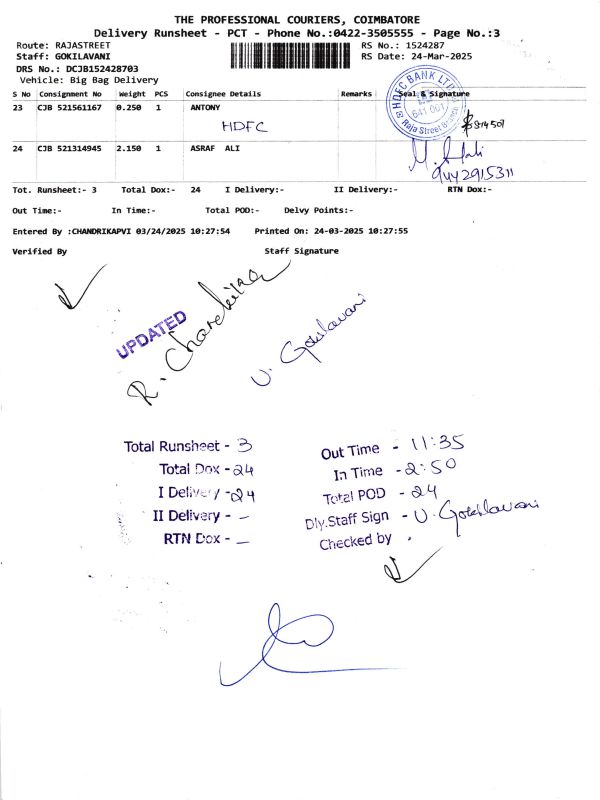 THE PROFESSIONAL COURIERS, COIMBATORE
Delivery Runsheet - PCT - Phone No.:0422-3505555 - Page No.:3
Route: RAJASTREET
Staff: GOKILAVANI
DRS No.: DCJB152428703
Vehicle: Big Bag Delivery
RS No.: 1524287
RS Date: 24-Mar-2025
S No Consignment No Weight PCS Consignee Details Remarks Seal & Signature
HDFC BANK LTD
641 001
Raja Street Branch
23 CJB 521561167 0.250 1 ANTONY
HDFC
24 CJB 521314945 2.150 1 ASRAF ALI
9442915311
Tot. Runsheet:- 3 Total Dox:- 24 I Delivery:- II Delivery:- RTN Dox:-
Out Time:- In Time:- Total POD:- Delvy Points:-
Entered By :CHANDRIKAPVI 03/24/2025 10:27:54 Printed On: 24-03-2025 10:27:55
Verified By Staff Signature
UPDATED
R. Chandrika
U. Gokilavani
Total Runsheet - 3
Total Dox - 24
I Delivery - 24
II Delivery - –
RTN Dox - –
Out Time - 11:35
In Time - 2:50
Total POD - 24
Dly.Staff Sign - U. Gokilavani
Checked by